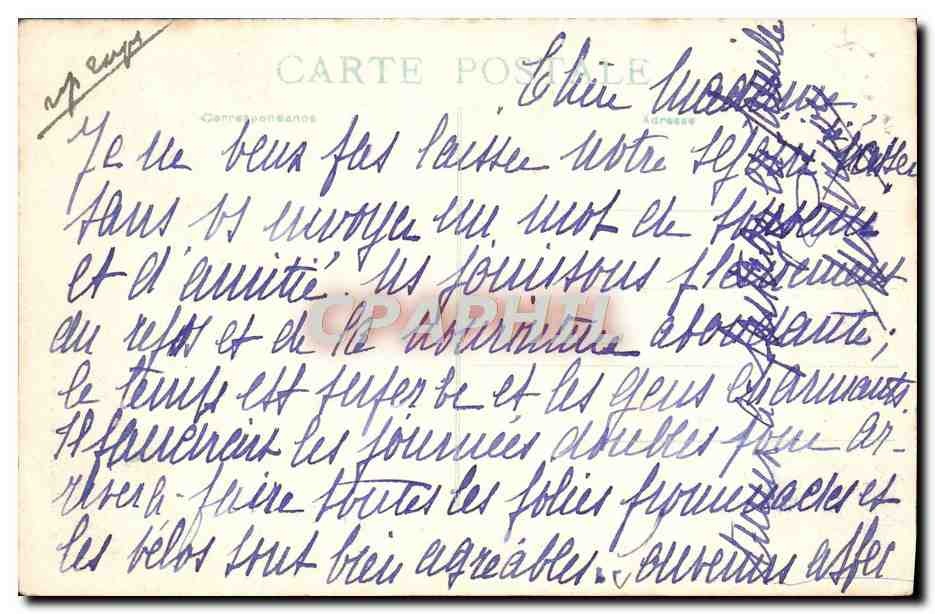 CARTE POSTALE
Correspondance
Adresse
rep
Chère Madame
Je ne veux pas laisser notre séjour passer
sans vs envoyer un mot de souvenir
et d'amitié. ns jouissons pleinement
du repos et de la nourriture abondante;
le temps est superbe et les gens charmants.
Il faudrait les journées doubles pour ar-
river à faire toutes les jolies promenades et
les vélos sont bien agréables. Souvenirs affec
CPAPHIL